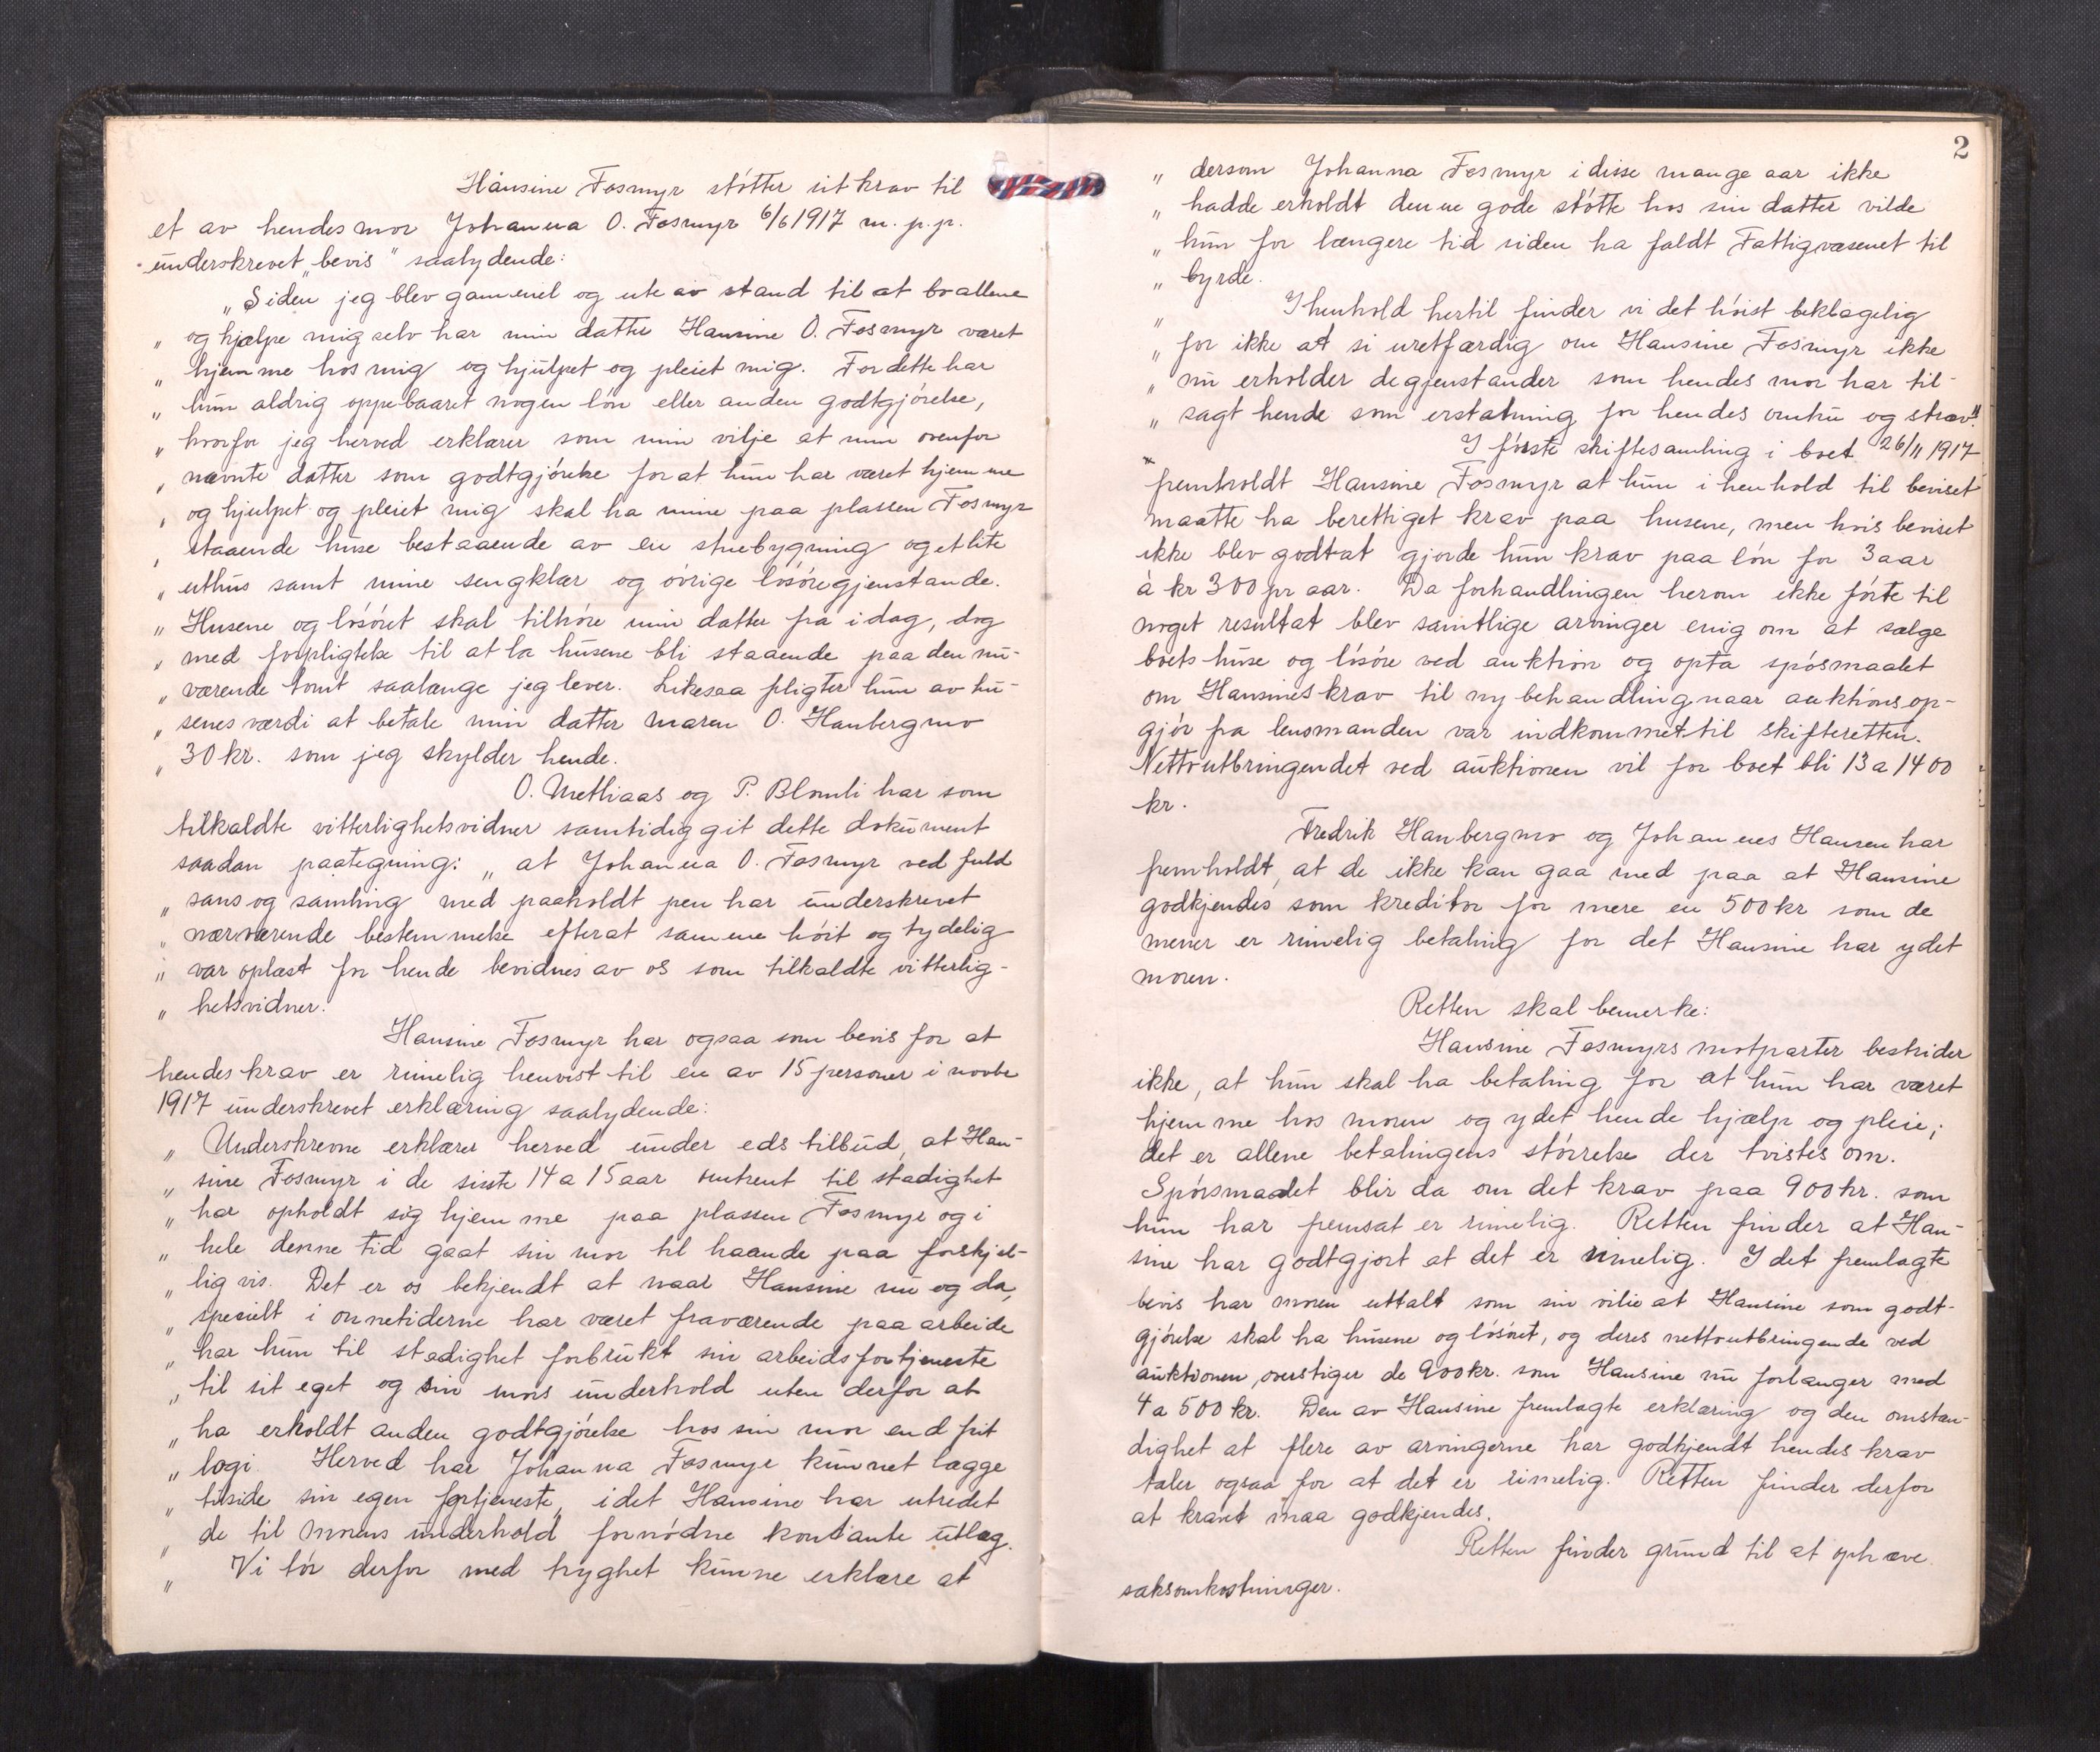 Hansine Fosmyr støtter sit krav til
et av hendes mor Johanna O. Fosmyr 6/6 1917 m. p. p.
underskrevet „bevis" saalydende:
„Siden jeg blev gammel og ute av stand til at bo allene
„ og hjælpe mig selv har min datter Hansine O. Fosmyr været
„ hjemme hos mig og hjulpet og pleiet mig. For dette har
„ hun aldrig oppebaaret nogen løn eller anden godtgjørelse,
„ hvorfor jeg herved erklærer som min vilje at min ovenfor
„ nævnte datter som godtgjørelse for at hun har været hjemme
„ og hjulpet og pleiet mig skal ha mine paa plassen Fosmyr
„ staaende huse bestaaende av en stuebygning og et lite
„ uthus samt mine sengklær og øvrige løsøregjenstande.
„ Husene og løsøret skal tilhøre min datter fra idag, dog
„ med forpligtelse til at la husene bli staaende paa den nu-
„ værende tomt saalænge jeg lever. Likesaa pligter hun av hu-
„ senes værdi at betale min datter Maren O. Hanbergmo
„ 30 kr. som jeg skylder hende.
O. Metliaas og P. Blomli har som
tilkaldte vitterlighetsvidner samtidig git dette dokument
saadan paategning: „ at Johanna O. Fosmyr ved fuld
„ sans og samling med paaholdt pen har underskrevet
„ nærværende bestemmelse efterat samme høit og tydelig
„ var oplæst for hende bevidnes av os som tilkaldte vitterlig-
„ hetsvidner.
Hansine Fosmyr har ogsaa som bevis for at
hendes krav er rimelig henvist til en av 15 personer i novbr
1917 underskrevet erklæring saalydende:
„ Underskrevne erklærer herved under eds tilbud, at Han-
„ sine Fosmyr i de sisste 14 a 15 aar omtrent til stadighet
„ har opholdt sig hjemme paa plassen Fosmyr og i
„ hele denne tid gaat sin mor til haande paa forskjel-
„ lig vis. Det er os bekjendt at naar Hansine nu og da,
„ specielt i onnetiderne har været fraværende paa arbeide
„ har hun til stadighet forbrukt sin arbeidsfortjeneste
„ til sit eget og sin mors underhold uten derfor at
„ ha erholdt anden godtgjørelse hos sin mor end frit
„ logi. Herved har Johanna Fosmyr kunnet lægge
„ tilside sin egen fortjeneste, idet Hansine har utredet
„ de til morens underhold fornødne kontante utlæg.
„ Vi tør derfor med tryghet kunne erklære at
2
„ dersom Johanna Fosmyr i disse mange aar ikke
„ hadde erholdt denne gode støtte hos sin datter vilde
„ hun for længere tid siden ha faldt Fattigvæsenet til
„ byrde.
„ I henhold hertil finder vi det høist beklagelig
„ for ikke at si uretfærdig om Hansine Fosmyr ikke
„ nu erholder de gjenstander som hendes mor har til-
„ sagt hende som erstatning for hendes omhu og stræv."
I første skiftesamling i boet 26/11 1917
fremholdt Hansine Fosmyr at hun i henhold til beviset
maatte ha berettiget krav paa husene, men hvis beviset
ikke blev godtat gjorde hun krav paa løn for 3 aar
à kr 300 pr aar. Da forhandlingen herom ikke førte til
noget resultat blev samtlige arvinger enig om at sælge
boets huse og løsøre ved auktion og opta spørsmaalet
om Hansines krav til ny behandling naar auktionsop-
gjør fra lensmanden var indkommet til skifteretten.
Nettoutbringendet ved auktionen vil for boet bli 13 a 1400
kr.
Fredrik Hanbergmo og Johannes Hansen har
fremholdt, at de ikke kan gaa med paa at Hansine
godkjendes som kreditor for mere en 500 kr som de
mener er rimelig betaling for det Hansine har ydet
moren.
Retten skal bemerke:
Hansine Fosmyrs motparter bestrider
ikke, at hun skal ha betaling for at hun har været
hjemme hos moren og ydet hende hjælp og pleie;
det er allene betalingens størrelse der tvistes om.
Spørsmaalet blir da om det krav paa 900 kr. som
hun har fremsat er rimelig. Retten finder at Han-
sine har godtgjort at det er rimelig. I det fremlagte
bevis har moren uttalt som sin vilie at Hansine som godt-
gjørelse skal ha husene og løsøret, og deres nettoutbringende ved
auktionen, overstiger de 900 kr. som Hansine nu forlanger med
4 a 500 kr. Den av Hansine fremlagte erklæring og den omstæn-
dighet at flere av arvingerne har godkjendt hendes krav
taler ogsaa for at det er rimelig. Retten finder derfor
at kravet maa godkjendes.
Retten finder grund til at ophæve
saksomkostninger.